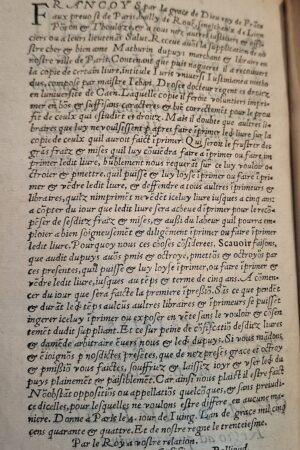 FRANÇOYS par la grace de Dieu roy de Frãce
aux preuost de Paris, bailly de Rouẽ, seneschaux de Lion
& Tholouze, & a tous noz autres iusticiers & offi-
ciers ou a leurs lieutenãs Salut. Receue auõs la supplicatiõ de no
stre cher & bien ame Mathurin dupuys marchant & libraire en
nostre ville de Paris, Contenant que puis nagueres il a recouuert
la copie de certain liure, intitulé
dus, composé par maistre docteur regent es droictz
en luniuersité de Caen. Laquelle copie il feroit voluntiers impri-
mer en bõs & suffisans caracteres & biẽ correctemẽt pour le prou
fit de ceulx qui estudiẽt es droictz. Mais il doubte que autres li-
braires que luy ne voulsissent apres faire ĩprimer led liure sur la
copie de celluy quil auroit faict ĩprimer Qui seroit le frustrer des
grãs fraiz & mises quil luy cõuiendra faire a ĩprimer ou faire im-
primer ledit liure, humblement nous requerãt sur ce luy vouloir o-
ctroier & pmettre, quil puisse & luy loyse ĩprimer ou faire ĩpri-
mer & vẽdre ledit liure, & deffendre a tous autres ĩprimeurs &
libraires, quilz nimprimẽt ne vẽdẽt icelluy liure iusques a cinq ans
a cõpter du iour que ledit liure sera acheué dimprimer pour le recõ-
pẽser de sesditz fraiz & mises, & aussi du labeur quil pourra em-
ploier a bien soigneusemẽt & diligẽmẽt ĩprimer ou faire ĩprimer
ledit liure. Pourquoy nous ces choses cõsiderees, Scauoir faisons,
que audit dupuys auõs pmis & octroyé, pmettõs & octroyõs par
ces presentes, quil puisse & luy loyse ĩprimer, ou faire ĩprimer &
vẽdre ledit liure, iusques au tẽps & terme de cinq ans. A cõmen-
cer du iour que sera faicte la premiere ĩpressiõ. Sãs ce que pendẽt
& durãt led tẽps aulcuns autres libraires & ĩprimeurs se puissent
ingerer icelluy ĩprimer ou exposer en vẽte sans le vouloir & cõsen
temẽt dudit suppliant. Et ce sur peine de cõfiscatiõ desdictz liures
& damẽde arbitraire ẽuers nous & led dupuys. Si vous mãdons
& ẽioignõs p nosdictes presẽtes, que de noz presẽs grace & octroy
& pmissiõ vous faictes, souffriez & laissiez ioyr & vser led du
puys plainemẽt & paisiblemẽt. Car ainsi nous plaist il estre faict
Nõobstãt oppositiõs ou appellatiõs quelcõques, & sans preiudi-
ce dicelles, pour lesquelles ne voulons estre differé en aucune ma-
niere. Donné a Paris le 4. iour de Iuing. Lan de grace mil cinq
cens quarante & quatre. Et de nostre regne le trentiesme.
Par le Roy a vostre relation.